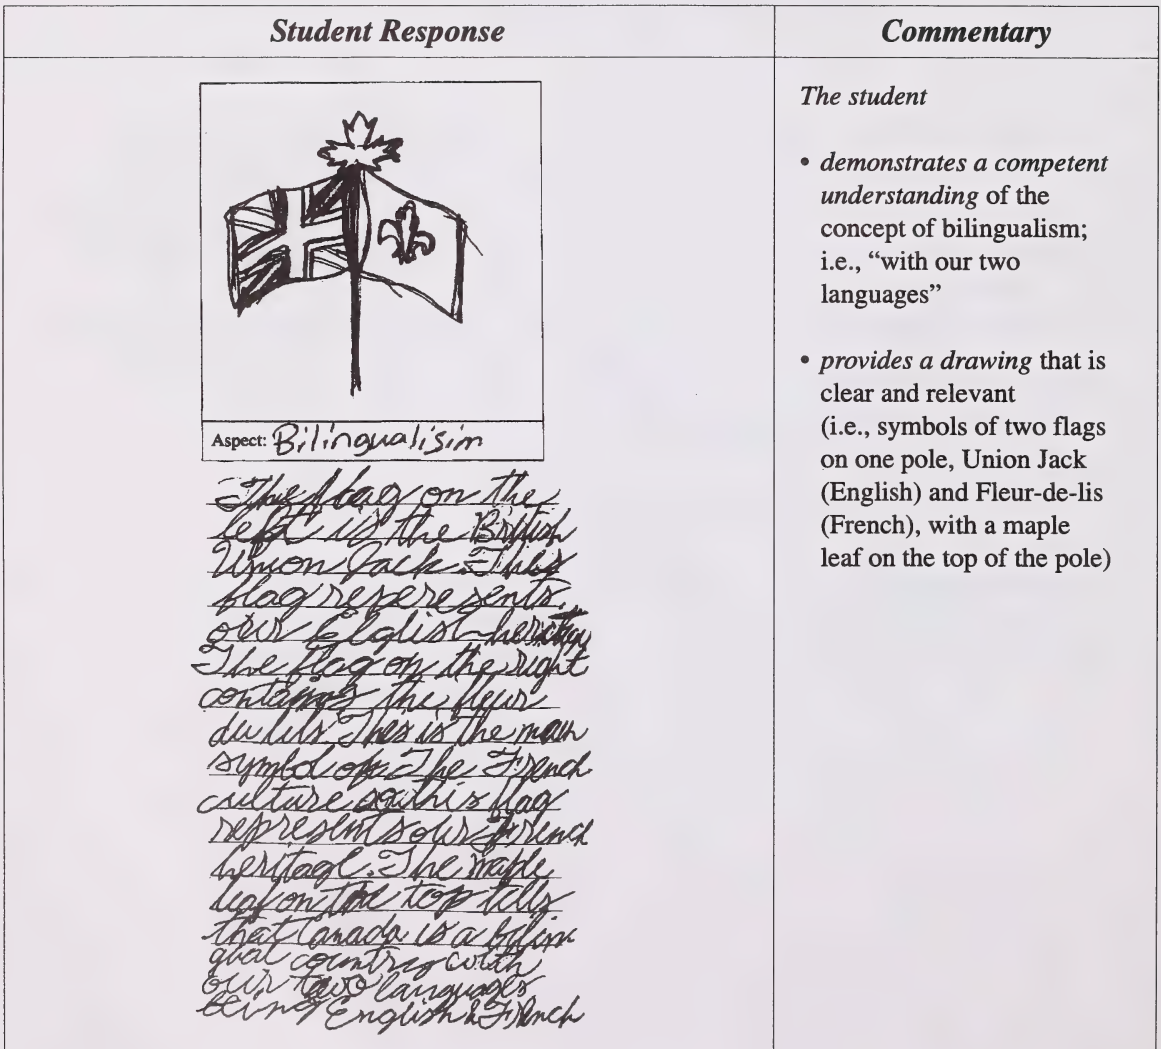 Student Response
Aspect: Bilingualisim
The flag on the
left is the British
Union Jack. This
flag repersents
our Elglish heritage
The flag on the right
contains the fleur
du lils This is the main
symbol of The French
culture so this flag
represents our French
heritage. The maple
leaf on the top tells
that Canada is a bilin
gual country with
our two languages
being English & French
Commentary
The student
• demonstrates a competent
understanding of the
concept of bilingualism;
i.e., “with our two
languages”
• provides a drawing that is
clear and relevant
(i.e., symbols of two flags
on one pole, Union Jack
(English) and Fleur-de-lis
(French), with a maple
leaf on the top of the pole)